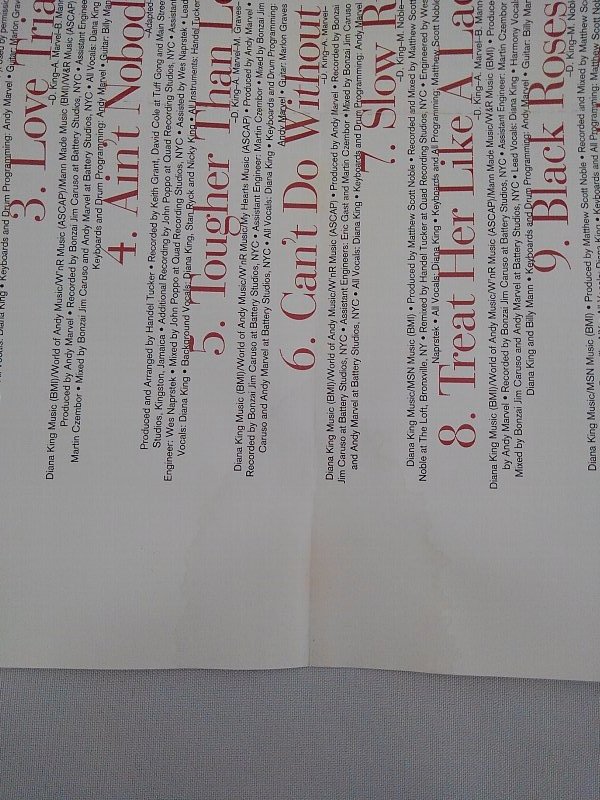 Keyboards and Drum Programming: Andy Marvel • Guitar: Marlon Grav
3. Love Tria
–D. King–A. Marvel–B. Mann
Diana King Music (BMI)/World of Andy Music/W'nR Music (ASCAP)/Mann Made Music (BMI)/W&R Music (ASCAP)
Produced by Andy Marvel • Recorded by Bonzai Jim Caruso at Battery Studios, NYC • Assistant Engine
Martin Czembor • Mixed by Bonzai Jim Caruso and Andy Marvel at Battery Studios, NYC • All Vocals: Diana King
Keyboards and Drum Programming: Andy Marvel • Guitar: Billy Man
4. Ain't Nobod
–Adapted
Produced and Arranged by Handel Tucker • Recorded by Keith Grant, David Cole at Tuff Gong and Main Stree
Studios, Kingston, Jamaica • Additional Recording by John Poppo at Quad Recording Studios, NYC • Assistant
Engineer: Wes Naprstek • Mixed by John Poppo at Quad Recording Studios, NYC • Assisted by Wes Naprstek • Lead
Vocals: Diana King • Background Vocals: Diana King, Stan Ryck and Nicky King • All Instruments: Handel Tucker
5. Tougher Than Lo
–D. King–A. Marvel–M. Graves–
Diana King Music (BMI)/World of Andy Music/W'nR Music/My Hearts Music (ASCAP) • Produced by Andy Marvel •
Recorded by Bonzai Jim Caruso at Battery Studios, NYC • Assistant Engineer: Martin Czembor • Mixed by Bonzai Jim
Caruso and Andy Marvel at Battery Studios, NYC • All Vocals: Diana King • Keyboards and Drum Programming:
Andy Marvel • Guitar: Marlon Graves
6. Can't Do Without
–D. King–A. Marvel–
Diana King Music (BMI)/World of Andy Music/W'nR Music (ASCAP) • Produced by Andy Marvel • Recorded by Bonzai
Jim Caruso at Battery Studios, NYC • Assistant Engineers: Eric Gast and Martin Czembor • Mixed by Bonzai Jim Caruso
and Andy Marvel at Battery Studios, NYC • All Vocals: Diana King • Keyboards and Drum Programming: Andy Marvel
7. Slow R
–D. King–M. Noble–
Diana King Music/MSN Music (BMI) • Produced by Matthew Scott Noble • Recorded and Mixed by Matthew Scott
Noble at The Loft, Bronxville, NY • Remixed by Handel Tucker at Quad Recording Studios, NYC • Engineered by Wes
Naprstek • All Vocals: Diana King • Keyboards and All Programming: Matthew Scott Noble
8. Treat Her Like A Lad
–D. King–A. Marvel–B. Mann
Diana King Music (BMI)/World of Andy Music/W'nR Music (ASCAP)/Mann Made Music/W&R Music (BMI) • Produced
by Andy Marvel • Recorded by Bonzai Jim Caruso at Battery Studios, NYC • Assistant Engineer: Martin Czembor
Mixed by Bonzai Jim Caruso and Andy Marvel at Battery Studios, NYC • Lead Vocals: Diana King • Harmony Vocals:
Diana King and Billy Mann • Keyboards and Drum Programming: Andy Marvel • Guitar: Billy Man
9. Black Roses
–D. King–M. Noble
Diana King Music/MSN Music (BMI) • Produced by Matthew Scott Noble • Recorded and Mixed by Matthew Scott